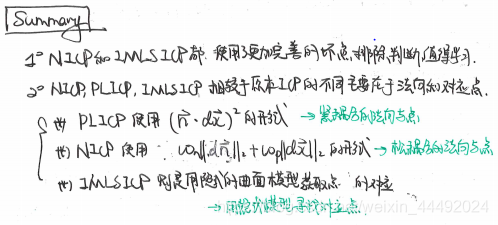 Summary
1° NICP和IMLSICP都使用了更加完善的坏点排除判断,值得学习.
2° NICP, PLICP, IMLSICP 相较于原本ICP的不同主要在于法向和对应点.
(*) PLICP 使用 (n⃗·dx⃗)² 的形式 → 紧耦合的法向与点
(*) NICP 使用 : ωn||dn⃗||₂ + ωp||dx⃗||₂ 的形式 → 松耦合的法向与点
(*) IMLSICP 则是用隐式的曲面模型获取点 的对应
→ 用隐式模型寻找对应点
weixin_44492024